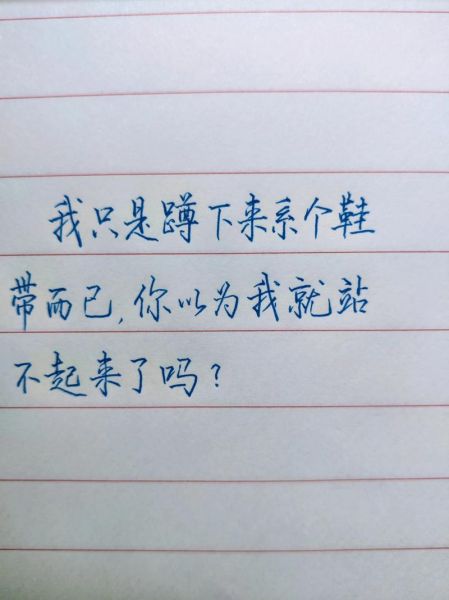 我只是蹲下来系个鞋
带而已,你以为我就站
不起来了吗?